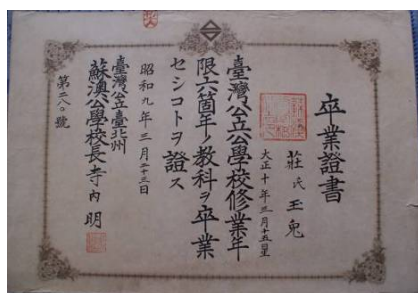 卒業證書
莊氏玉兔
大正十年三月十五日生
臺灣公立公學校修業年
限六箇年ノ教科ヲ卒業
セシコトヲ證ス
昭和九年三月二十三日
臺灣公立臺北州
蘇澳公學校長寺內明
第二八〇號